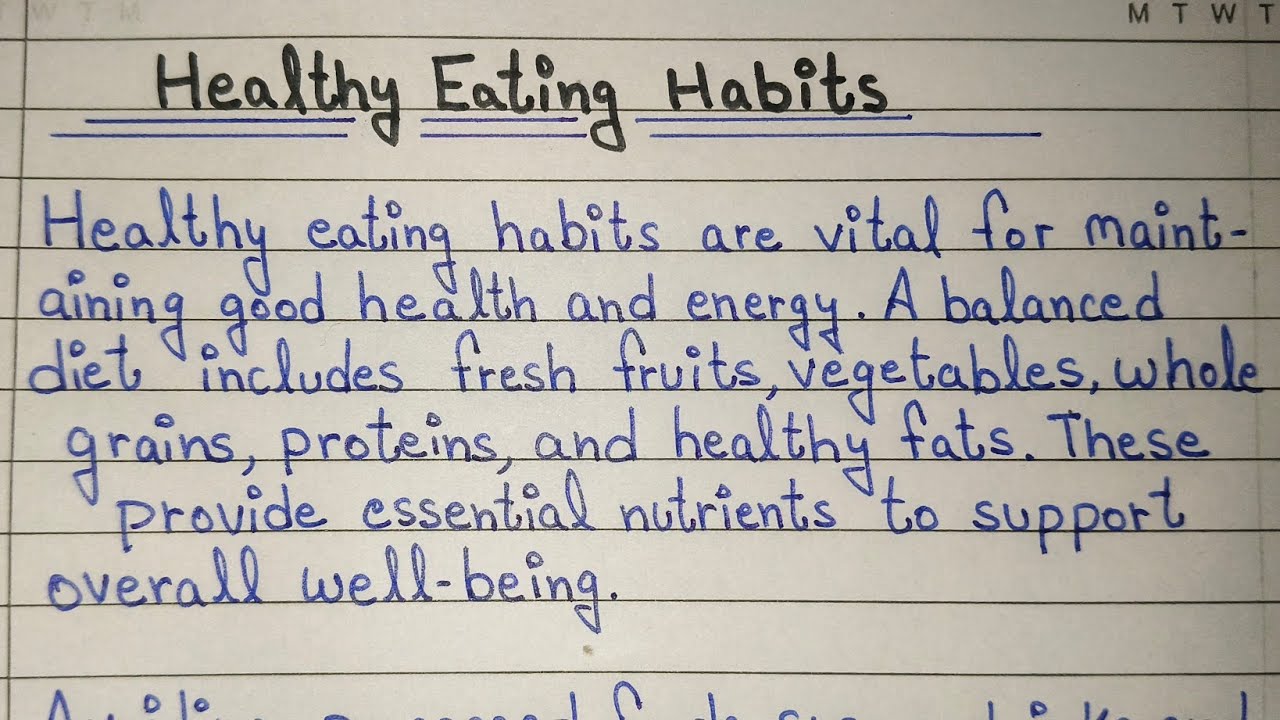 M T W T
Healthy Eating Habits
Healthy eating habits are vital for maint-
aining good health and energy. A balanced
diet includes fresh fruits, vegetables, whole
grains, proteins, and healthy fats. These
provide essential nutrients to support
overall well-being.